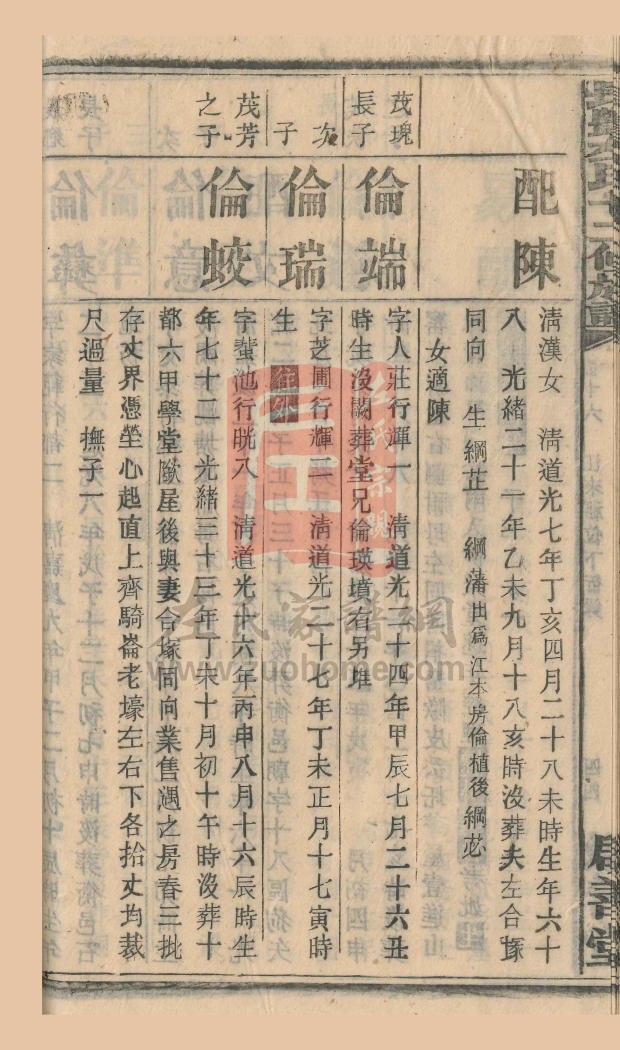 配陳
淸漢女 淸道光七年丁亥四月二十八未時生年六十
八 光緒二十一年乙未九月十八亥時沒葬夫左合塚
同向 生綱芷 綱藩出爲江本房倫植後綱苾
女適陳
茂瑰長子
倫端
字人莊行輝一 淸道光二十四年甲辰七月二十六丑
時生沒闕葬堂兄倫瑛墳右另堆
次子
倫瑞
字芝圃行輝二 淸道光二十七年丁未正月十七寅時
生 往外
茂芳之子
倫蛟
字蟄池行晄八 淸道光十六年丙申八月十六辰時生
年七十二 光緒三十三年丁未十月初十午時沒葬十
都六甲學堂歐屋後與妻合塚同向業售遇之房春三批
存丈界憑塋心起直上齊騎崙老壕左右下各拾丈均裁
尺過量 撫子一
善堂
在氏家譜網
www.zuohome.com